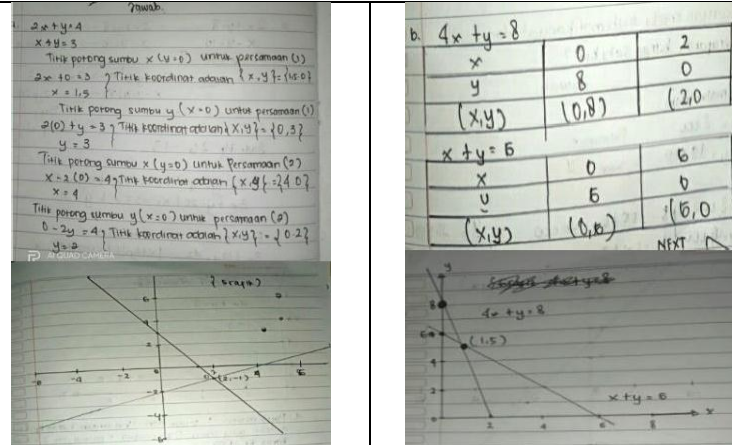 Jawab.
2x+y=4
x+y=3
Titik potong sumbu x (y=0) untuk persamaan (1)
2x+0=3 } Titik koordinat adalah {x,y}={1,5.0}
x=1,5
Titik potong sumbu y (x=0) untuk persamaan (1)
2(0)+y=3 } Titik koordinat adalah {x,y}={0,3}
y=3
Titik potong sumbu x (y=0) untuk Persamaan (2)
x-2(0)=4 } Titik koordinat adalah {x,y}={4.0}
x=4
Titik potong sumbu y (x=0) untuk persamaan (2)
0-2y=4 } Titik koordinat adalah {x,y}={0.2}
y=2
AI QUAD CAMERA
(Grafik)
6
2
-4
-2
(2,-1)
4
-2
-4
b. 4x+y=8
x 0 2
y 8 0
(x,y) (0,8) (2,0
x+y=6
x 0 6
y 6 0
(x,y) (0,6) (6,0
NEXT
y
8
4x+y=8
6
(1.5)
4
2
x+y=6
0 2 4 6 8 x